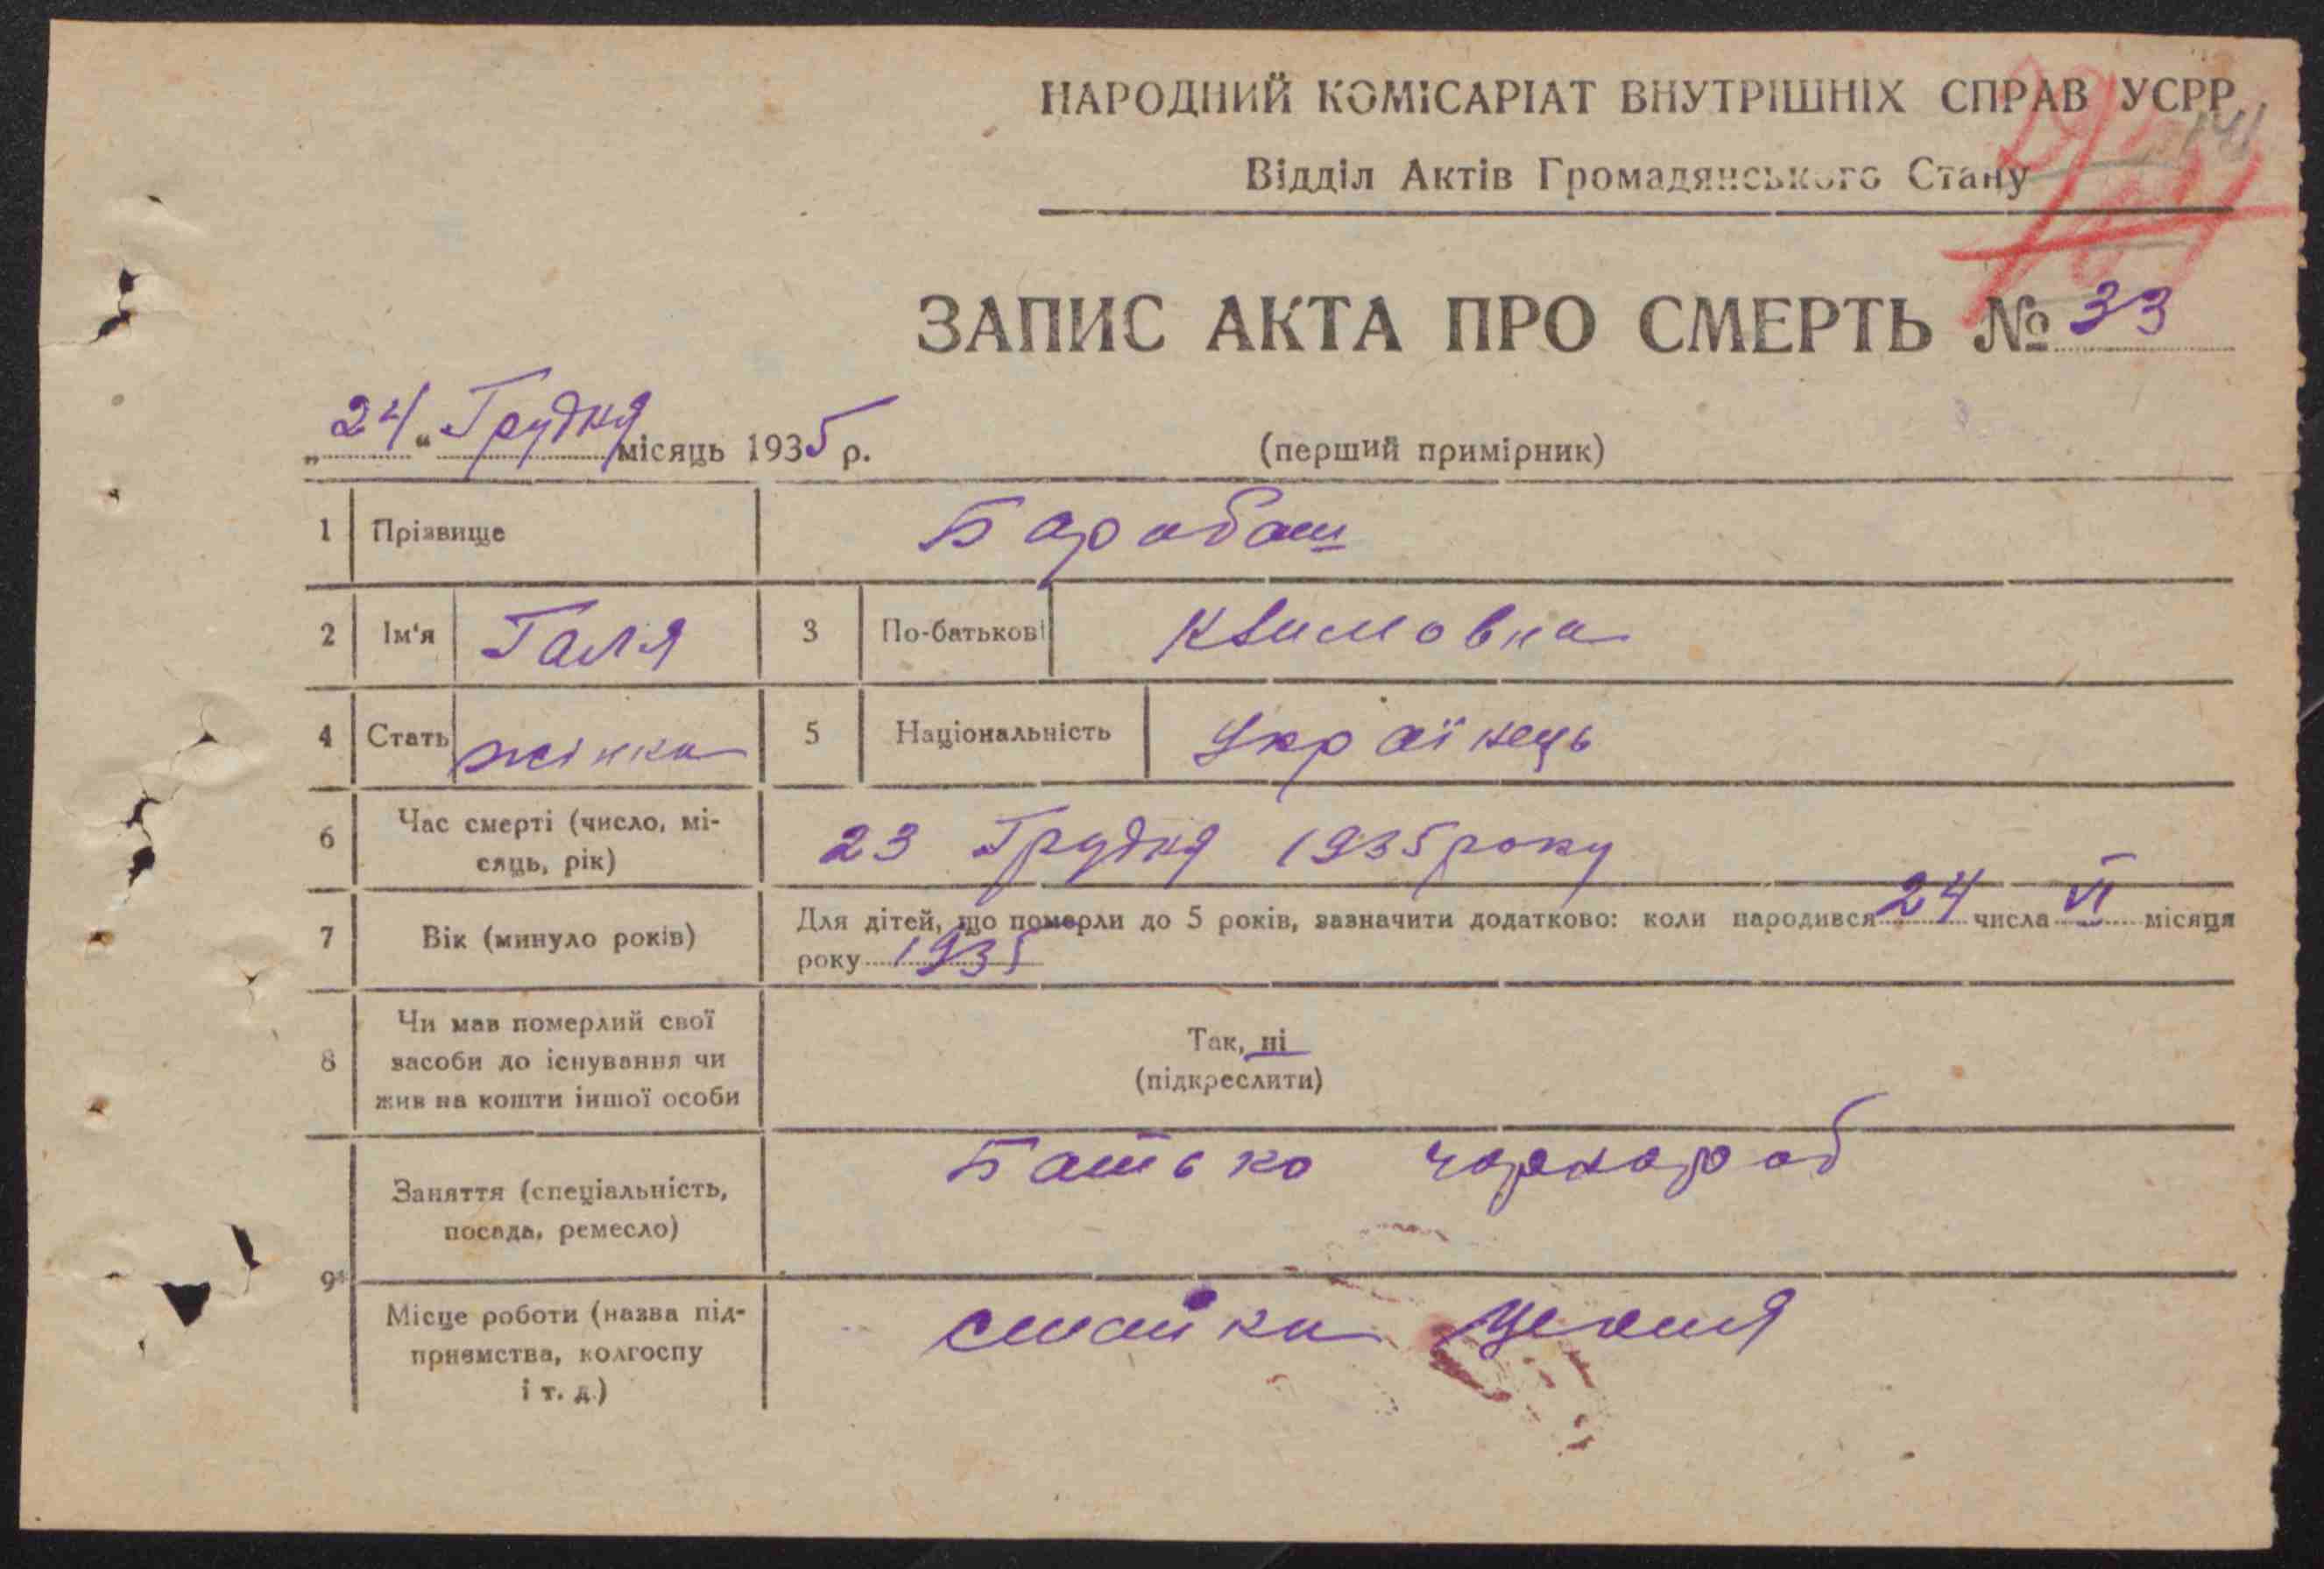 НАРОДНИЙ КОМІСАРІАТ ВНУТРІШНІХ СПРАВ УСРР
Відділ Актів Громадянського Стану
ЗАПИС АКТА ПРО СМЕРТЬ № 33
„24“ Грудня місяць 1935 р.
(перший примірник)
1 Прізвище Барабаш
2 Ім'я Галя 3 По-батькові Климовна
4 Стать жінка 5 Національність Українець
6 Час смерті (число, мі-
сяць, рік) 23 Грудня 1935 року
7 Вік (минуло років) Для дітей, що померли до 5 років, зазначити додатково: коли народився 24 числа VI місяця
року 1935
8 Чи мав померлий свої
засоби до існування чи
жив на кошти іншої особи
Так, ні
(підкреслити)
9 Заняття (спеціальність,
посада, ремесло) Батько чорнороб
Місце роботи (назва під-
приємства, колгоспу
і т. д.)